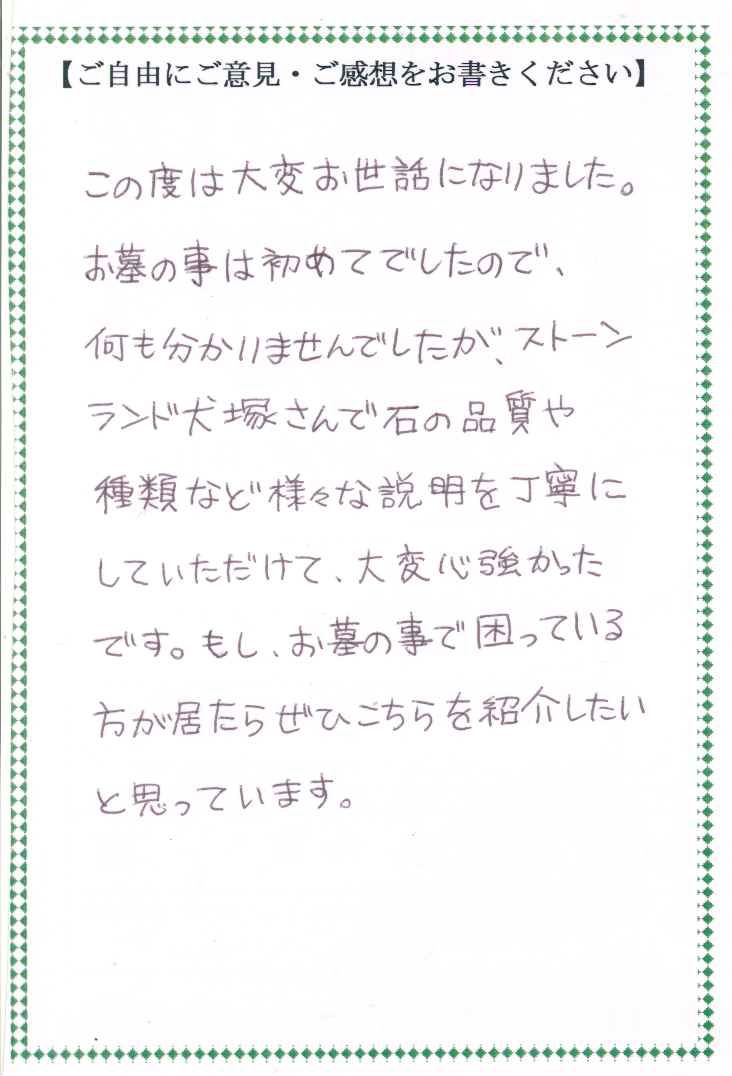 【ご自由にご意見・ご感想をお書きください】
この度は大変お世話になりました。
お墓の事は初めてでしたので、
何も分かりませんでしたが、ストーン
ランド犬塚さんで石の品質や
種類など様々な説明を丁寧に
していただけて、大変心強かった
です。もし、お墓の事で困っている
方が居たらぜひこちらを紹介したい
と思っています。